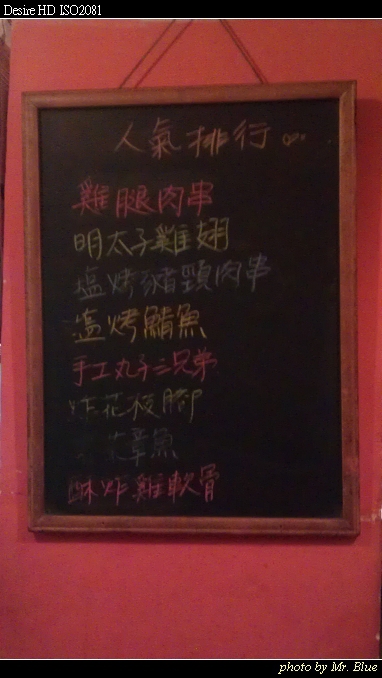 Desire HD ISO2081
人氣排行
雞腿肉串
明太子雞翅
塩烤豬頸肉串
塩烤鯖魚
手工丸子三兄弟
炸花枝腳
章魚
酥炸雞軟骨
photo by Mr. Blue